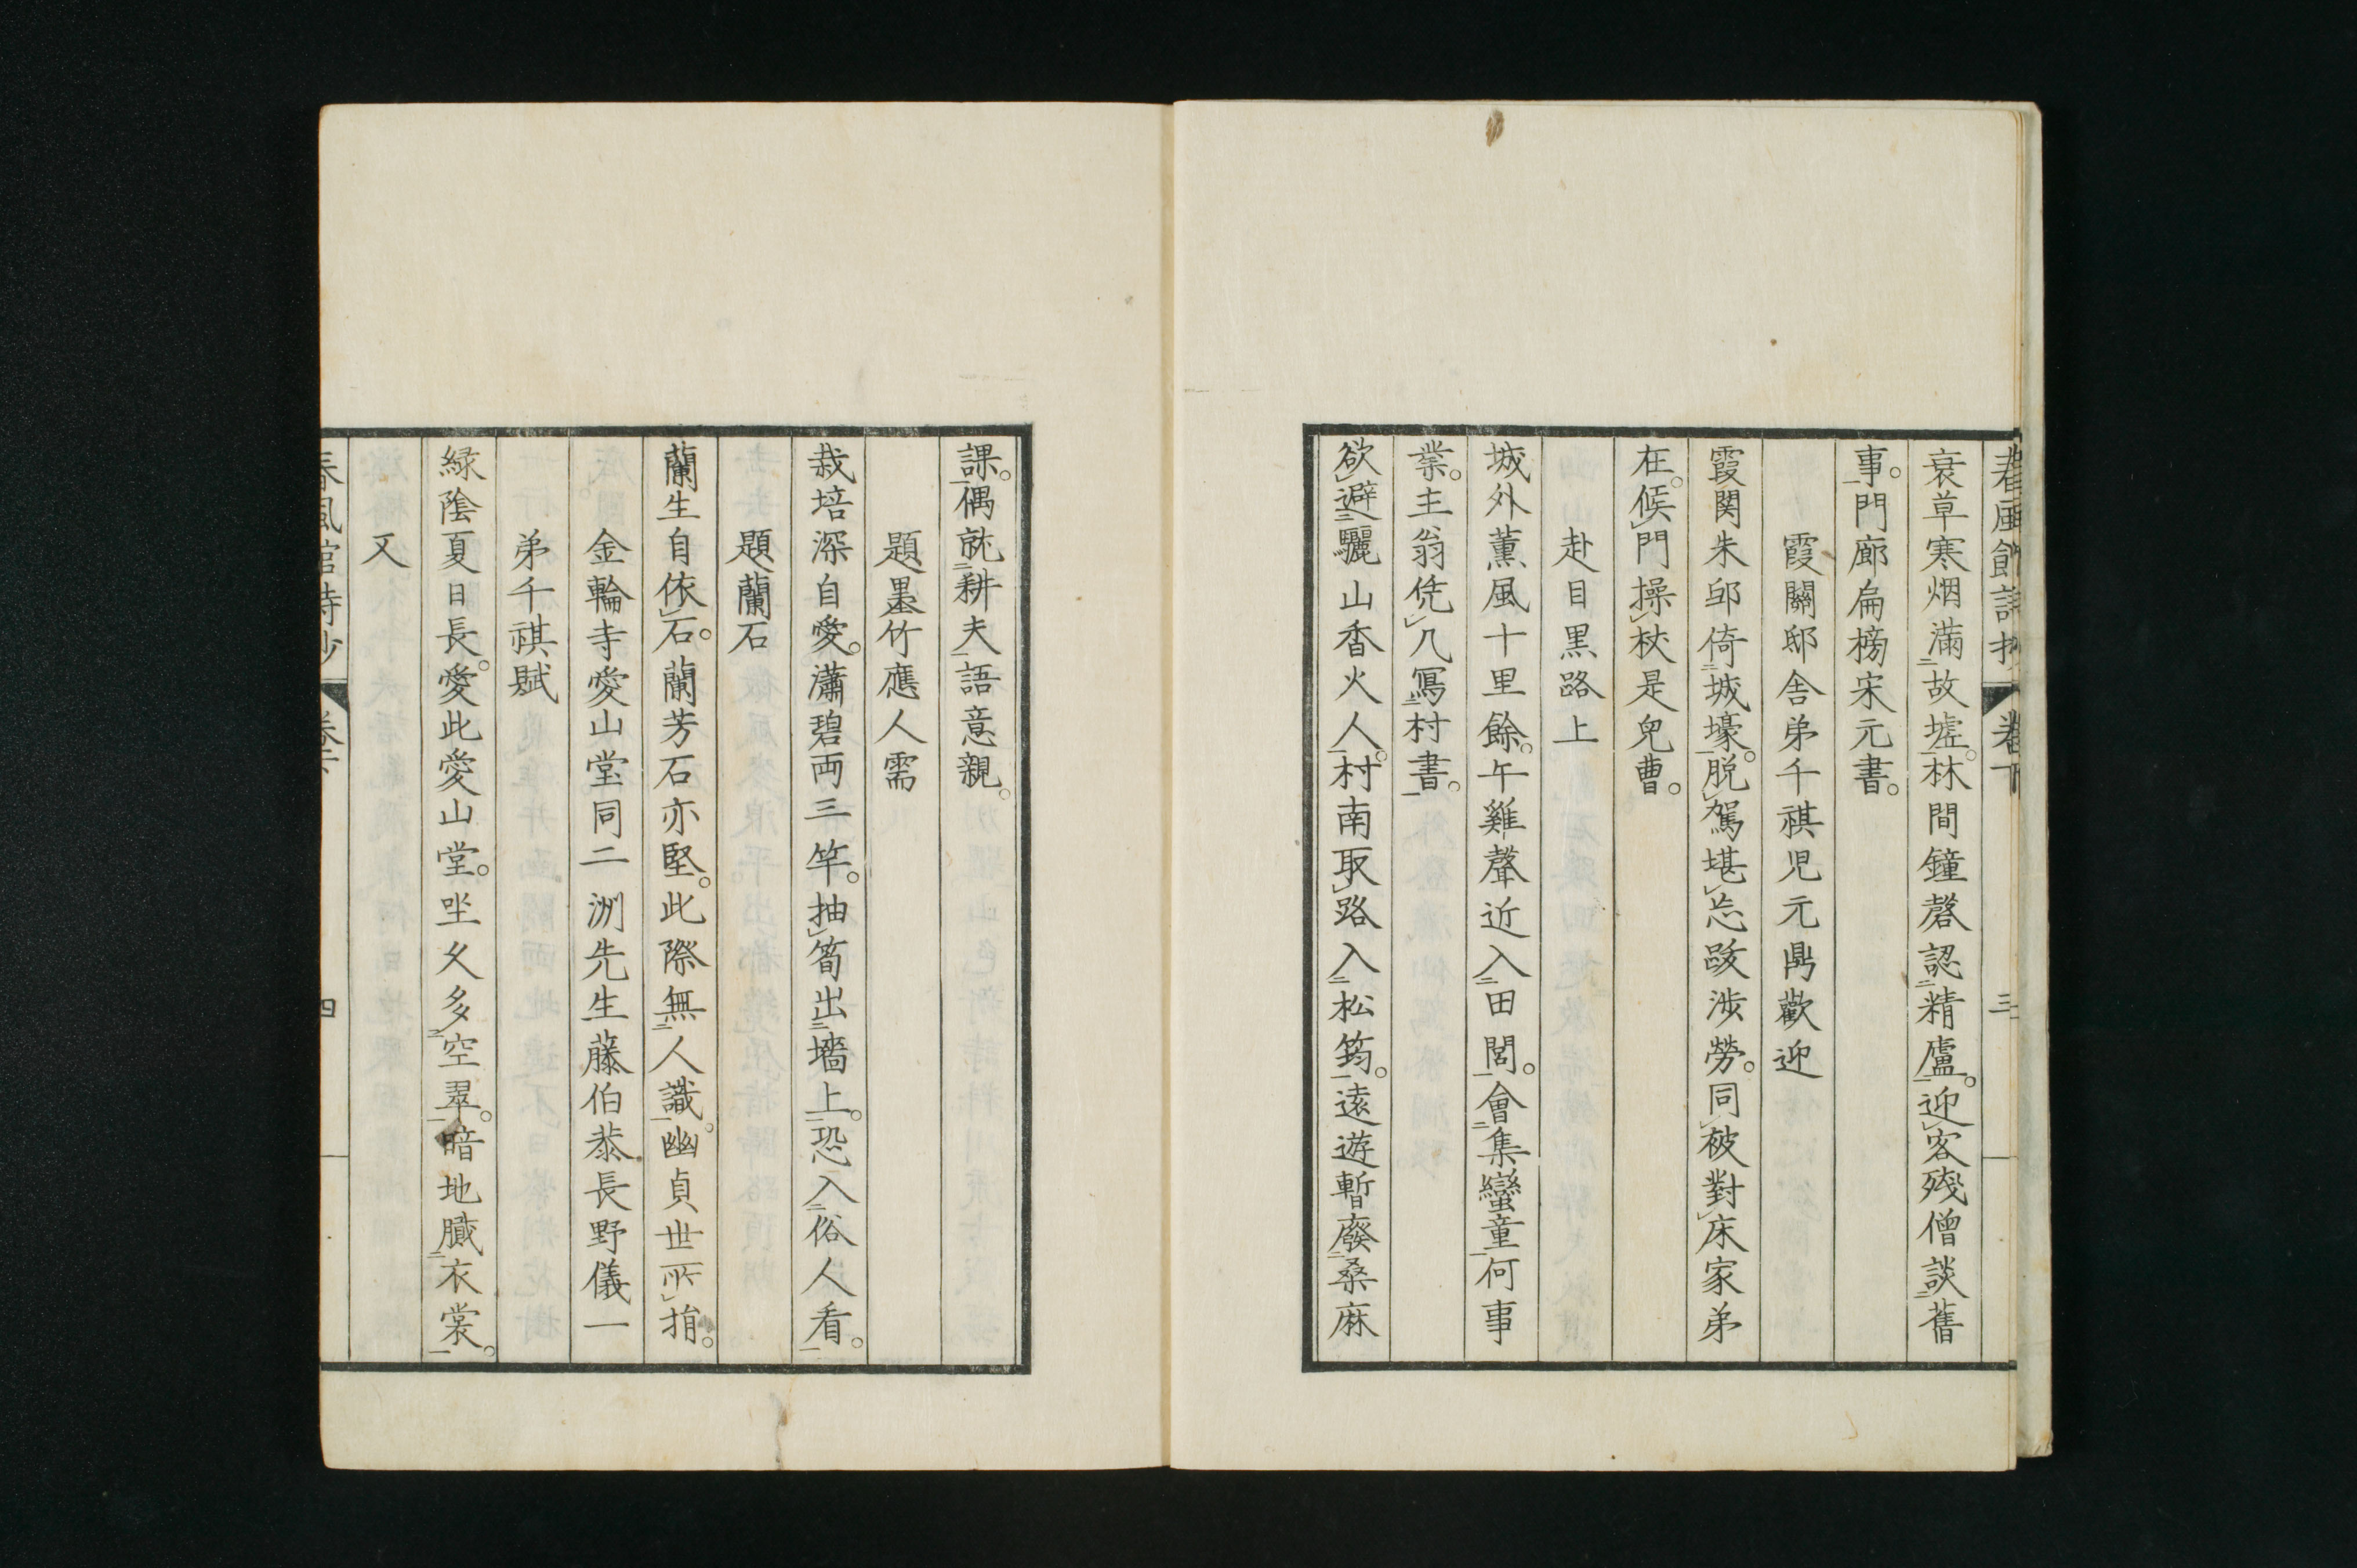 春風館詩抄 卷下 三
衰草寒烟滿故墟。林間鐘磬認精廬。迎客殘僧談舊
事。門廊扁榜宋元書。
霞關邸舍弟千祺児元鼎歡迎
霞関朱邸倚城壕。脱駕堪忘跋涉勞。同被對床家弟
在。候門操杖是兒曹。
赴目黒路上
城外薫風十里餘。午雞聲近入田閭。會集蠻童何事
業。主翁凭几寫村書。
欲避驪山香火人。村南取路入松筠。遠遊暫廢桑麻
課。偶就耕夫語意親。
題墨竹應人需
栽培深自愛。瀟碧両三竿。抽筍出墻上。恐入俗人看。
題蘭石
蘭生自依石。蘭芳石亦堅。此際無人識。幽貞世所捐。
金輪寺愛山堂同二洲先生藤伯恭長野儀一
弟千祺賦
緑陰夏日長。愛此愛山堂。坐久多空翠。暗地膩衣裳。
又
春風館詩抄 卷下 四